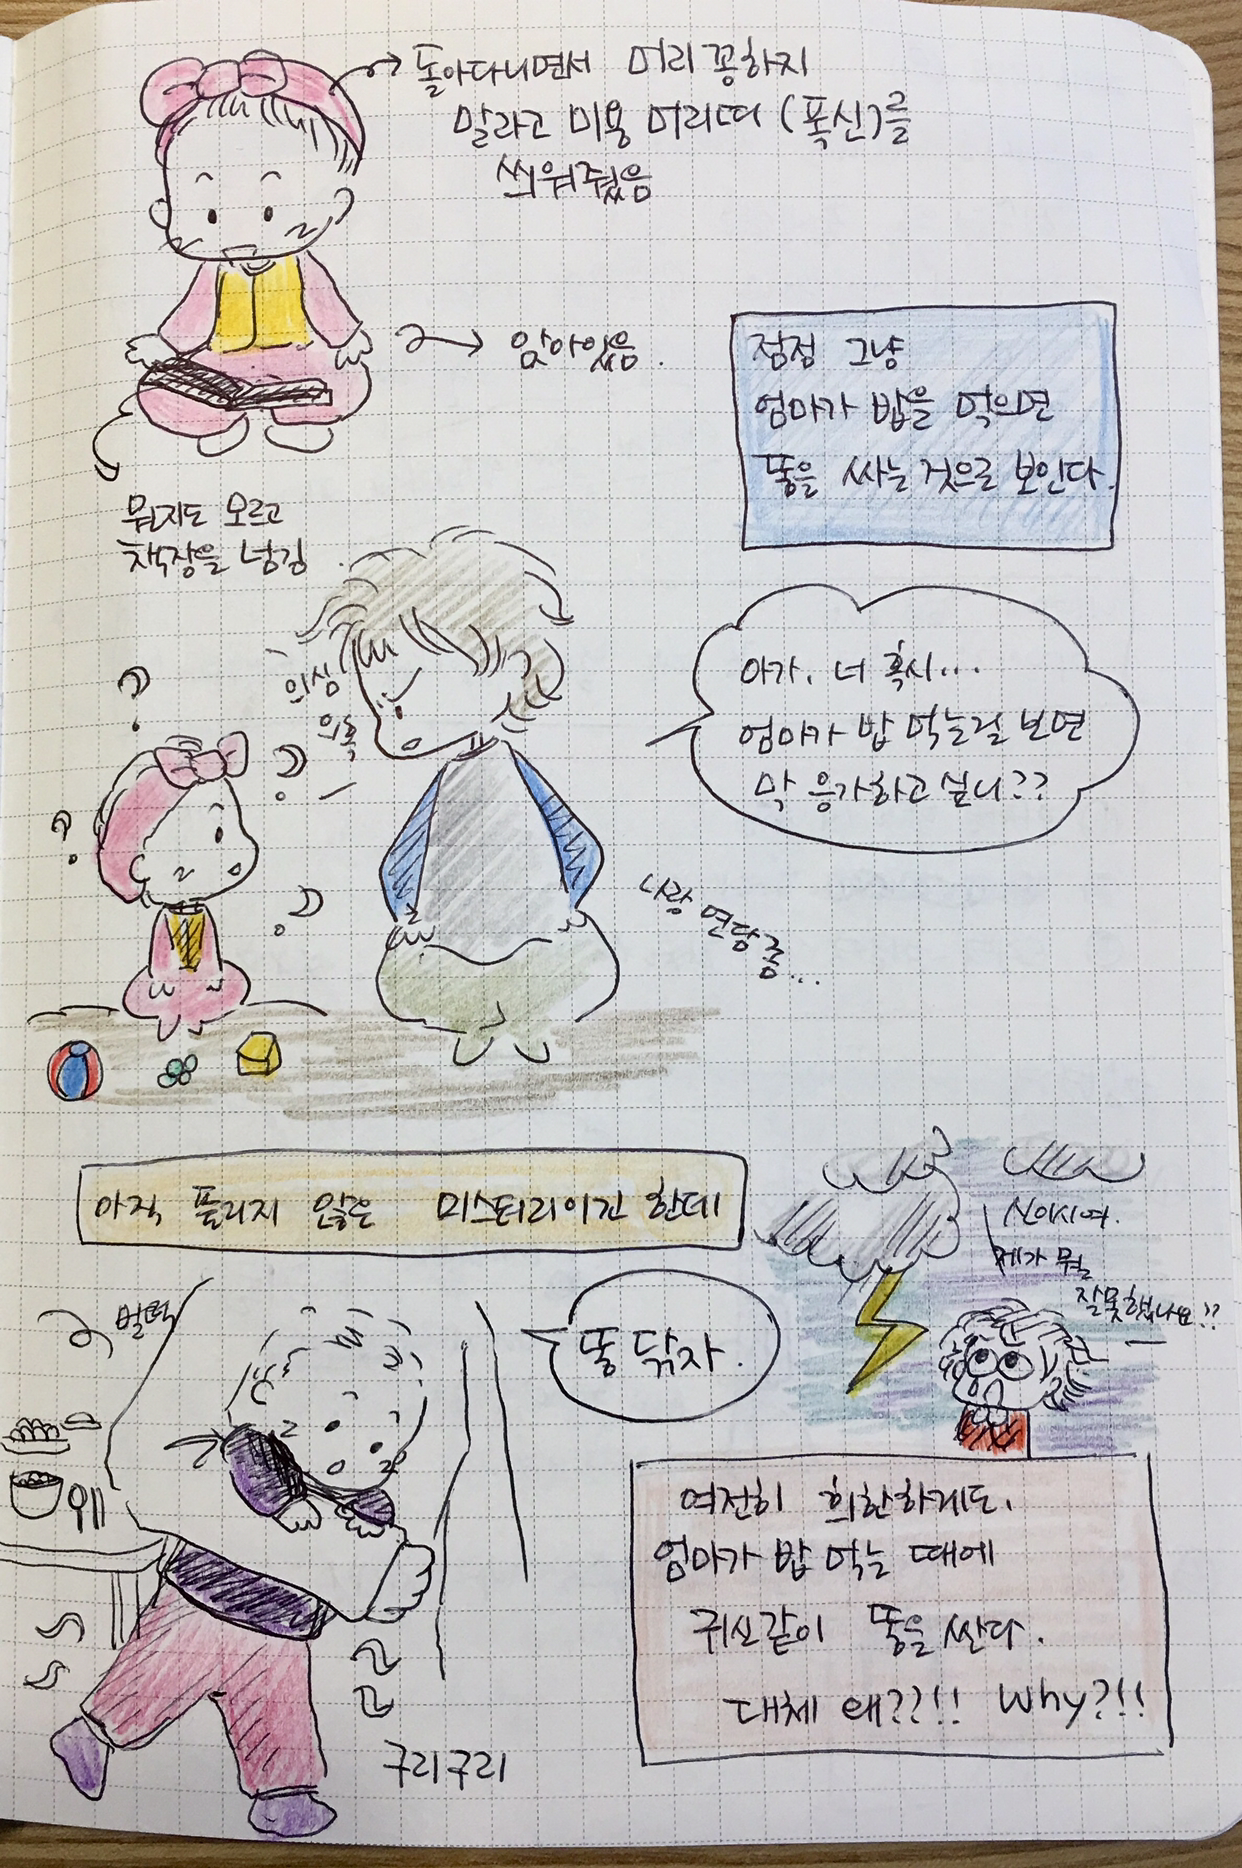 돌아다니면서 머리 꽁하지
말라고 미용 머리띠 (폭신)를
씌워줬음
앉아있음.
뭔지도 모르고
책장을 넘김.
점점 그냥
엄마가 밥을 먹으면
똥을 싸는 것으로 보인다.
의심
의혹
아가. 너 혹시...
엄마가 밥 먹는걸 보면
막 응가하고 싶니??
나랑 면담 좀...
아직 풀리지 않은 미스터리이긴 한데
신이시여.
제가 뭘
잘못했나요!?
벌떡
똥 닦자.
여전히 희한하게도,
엄마가 밥 먹는 때에
귀신같이 똥을 싼다.
대체 왜??!! Why?!!
구리구리